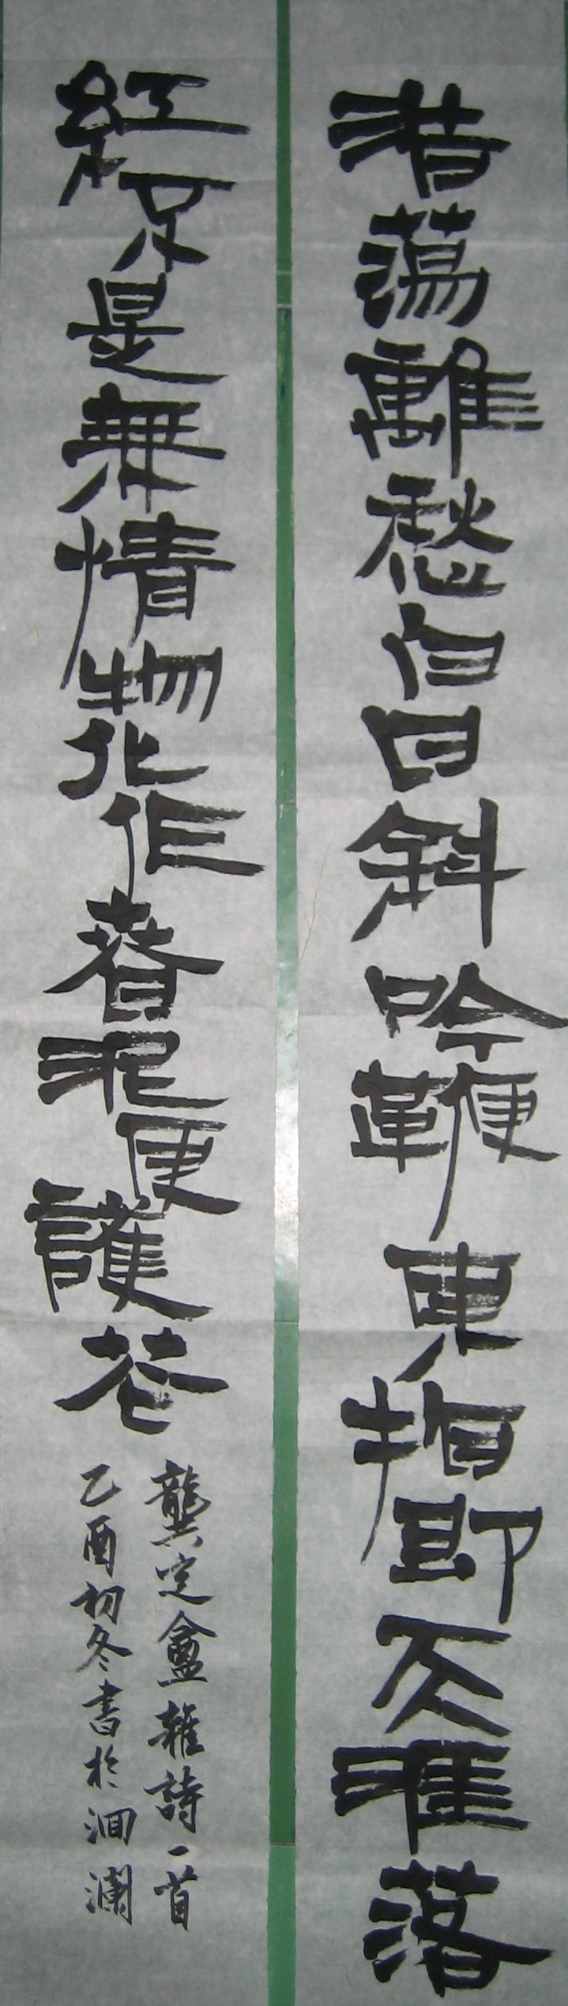 浩蕩離愁白日斜吟鞭東指即天涯落
紅不是無情物化作春泥更護花
龔定盦雜詩一首
乙酉初冬書於洄瀾